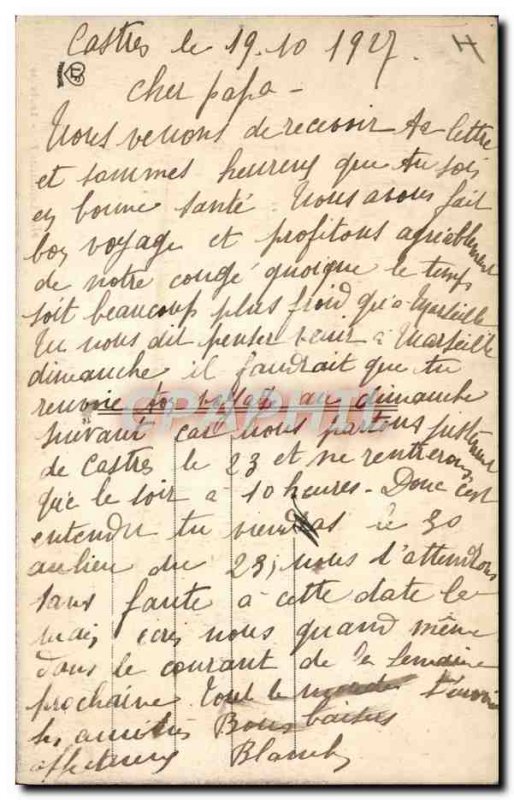 Castres le 19.10.1927.
cher papa -
Nous venons de recevoir ta lettre
et sommes heureux que tu sois
en bonne santé. Nous avons fait
bon voyage et profitons agréablement
de notre congé quoique le temps
soit beaucoup plus froid qu'à Marseille
Tu nous dit penser venir à Marseille
dimanche il faudrait que tu
renvoie ton voyage au dimanche
suivant car nous partons justement
de Castres le 23 et ne rentrerons
que le soir à 10 heures - Donc c'est
entendu tu viendras le 30
au lieu du 23, nous t'attendrons
sans faute à cette date la
mais ecris nous quand même
dans le courant de la semaine
prochaine. Tout le monde t'envoie
amitiés Bons baisers
affectueux Blanche